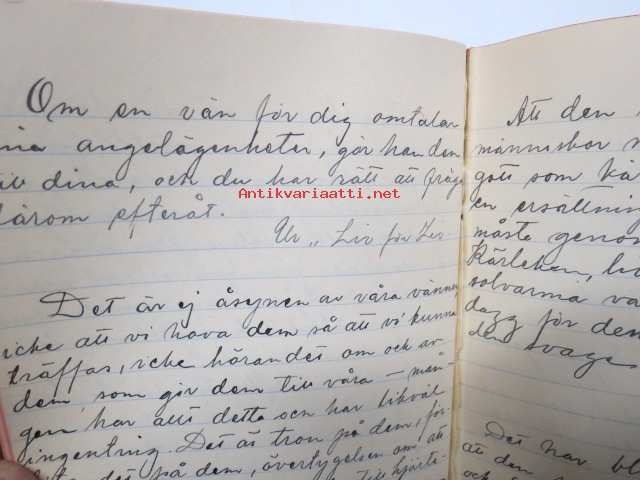 Om en vän för dig omtalar
ina angelägenheter, gör han dem
till dina, och du har rätt att fråga
därom efteråt.
Ur "Liv för Liv"
Det är ej åsynen av våra vänner
icke att vi hava dem så att vi kunna
träffas, icke hörandet om och av
dem, som gör dem till våra – mån-
gen har allt detta och har likväl
ingenting. Det är tron på dem, för-
det på dem, övertygelsen om att
till hjärte-
Antikvariaatti.net
Att den
människor
gott som kär
en ersättning
måste genom
Kärleken, li
solvarma va
dagg för den
den svage
Det har bl
att den
och